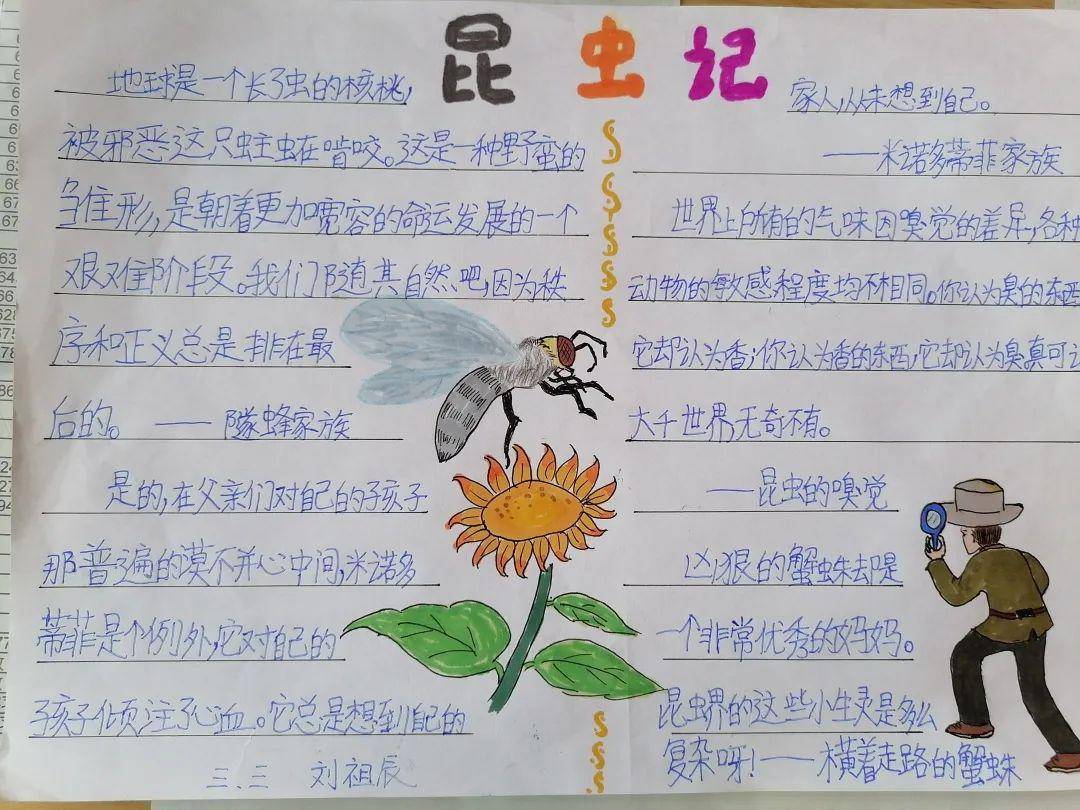 昆虫记
地球是一个长了虫的核桃,
被邪恶这只蛀虫在啃咬。这是一种野蛮的
雏形,是朝着更加宽容的命运发展的一个
艰难阶段。我们随其自然吧,因为秩
序和正义总是排在最
后的。 ——隧蜂家族
是的,在父亲们对自己的孩子
那普遍的漠不关心中间,米诺多
蒂菲是个例外,它对自己的
孩子倾注了心血。它总是想到自己的
三、三 刘祖辰
家人,从未想到自己。
——米诺多蒂菲家族
世界上所有的气味因嗅觉的差异,各种
动物的敏感程度均不相同。你认为臭的东西
它却认为香;你认为香的东西,它却认为臭,真可
大千世界,无奇不有。
——昆虫的嗅觉
凶狠的蟹蛛却是
一个非常优秀的妈妈。
昆虫界的这些小生灵是多么
复杂呀!——横着走路的蟹蛛